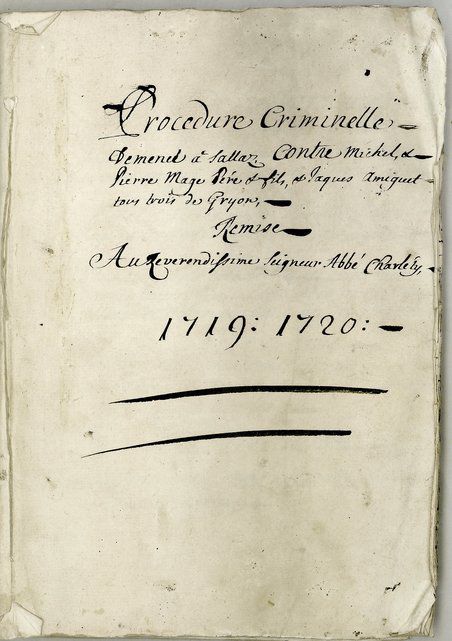 Procedure Criminelle
Demenet à Sallaz Contre Michel, &
Pierre Mage Père & fils, & Jaques Amiguet
tous trois de Gryon,
Remise
Au Reverendissime Seigneur Abbé Charléty,
1719: 1720: